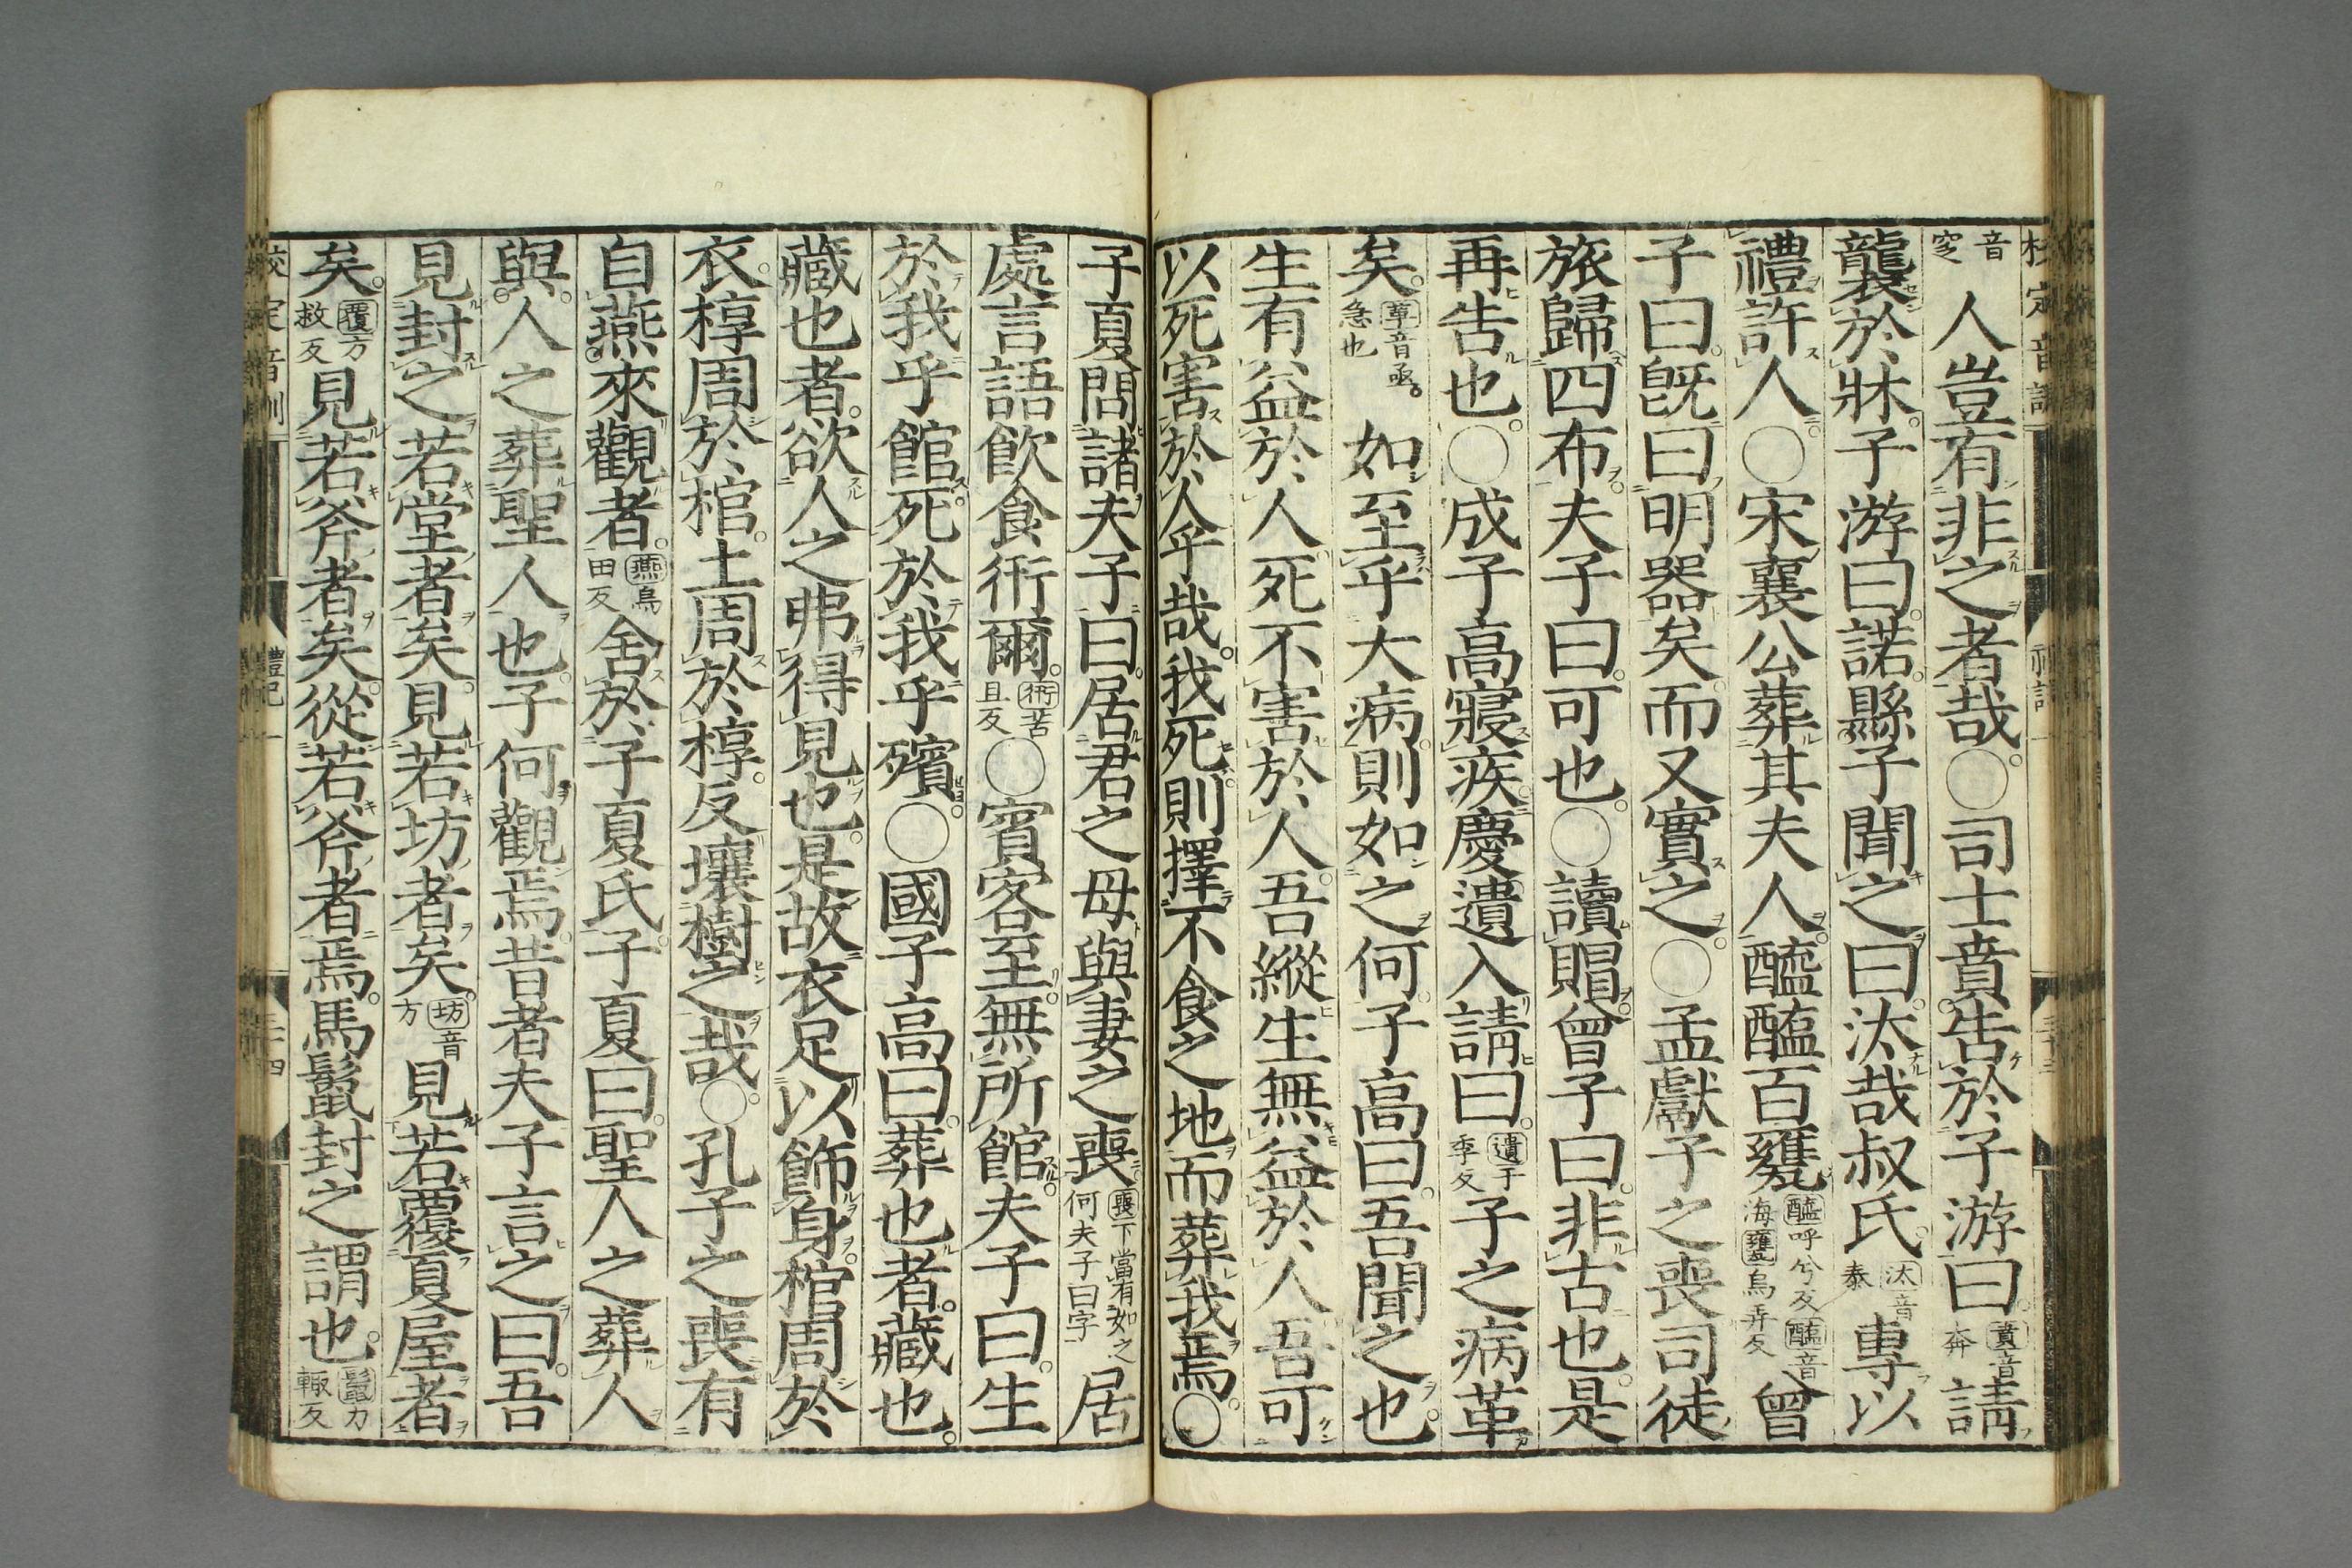 音窆人豈有非之者哉○司士賁告於子游曰賁音奔請
襲於牀子游曰諾縣子聞之曰汰哉叔氏汰音泰專以
禮許人○宋襄公葬其夫人醯醢百甕醯呼兮反醢音海甕烏弄反曾
子曰旣曰明器矣而又實之○孟獻子之喪司徒
旅歸四布夫子曰可也○讀賵曾子曰非古也是
再告也○成子高寢疾慶遺入請曰遺于季反子之病革
矣革音亟急也如至乎大病則如之何子高曰吾聞之也
生有益於人死不害於人吾縱生無益於人吾可
以死害於人乎哉我死則擇不食之地而葬我焉○
子夏問諸夫子曰居君之母與妻之喪喪下當有如之何夫子曰字居
處言語飲食衎爾衎苦旦反○賓客至無所館夫子曰生
於我乎館死於我乎殯○國子高曰葬也者藏也
藏也者欲人之弗得見也是故衣足以飾身棺周於
衣椁周於棺土周於椁反壤樹之哉○孔子之喪有
自燕來觀者燕烏田反舍於子夏氏子夏曰聖人之葬人
與人之葬聖人也子何觀焉昔者夫子言之曰吾
見封之若堂者矣見若坊者矣坊音方見若覆夏屋者
矣覆方救反見若斧者矣從若斧者焉馬鬣封之謂也鬣力輒反
校定音訓
禮記一
三十四